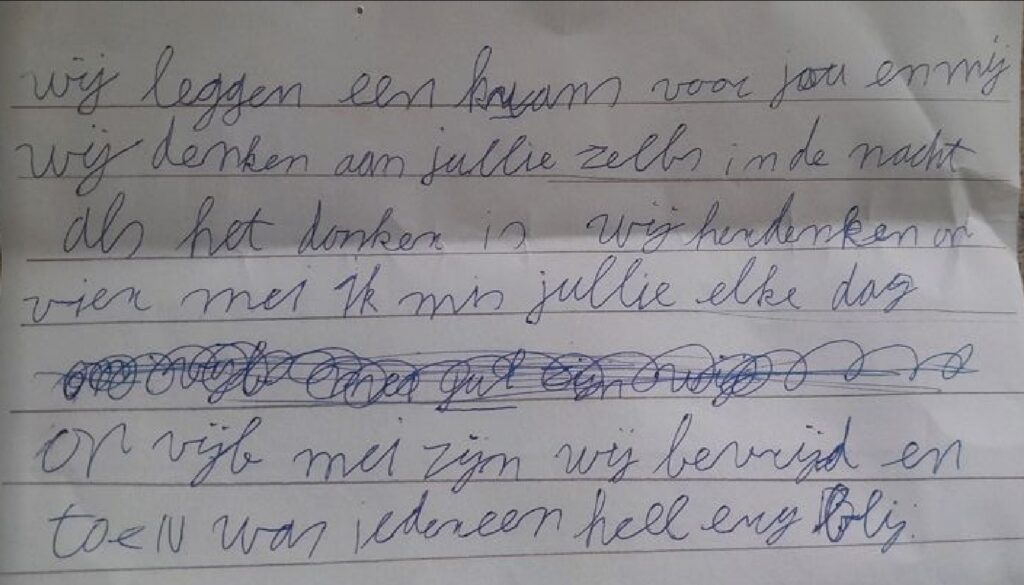 wij leggen een krans voor jou en mij
wij denken aan jullie zelfs in de nacht
als het donker is wij herdenken op
vier mei ik mis jullie elke dag
op vijf mei zijn wij bevrijd en
toen was iedereen heel erg Blij.